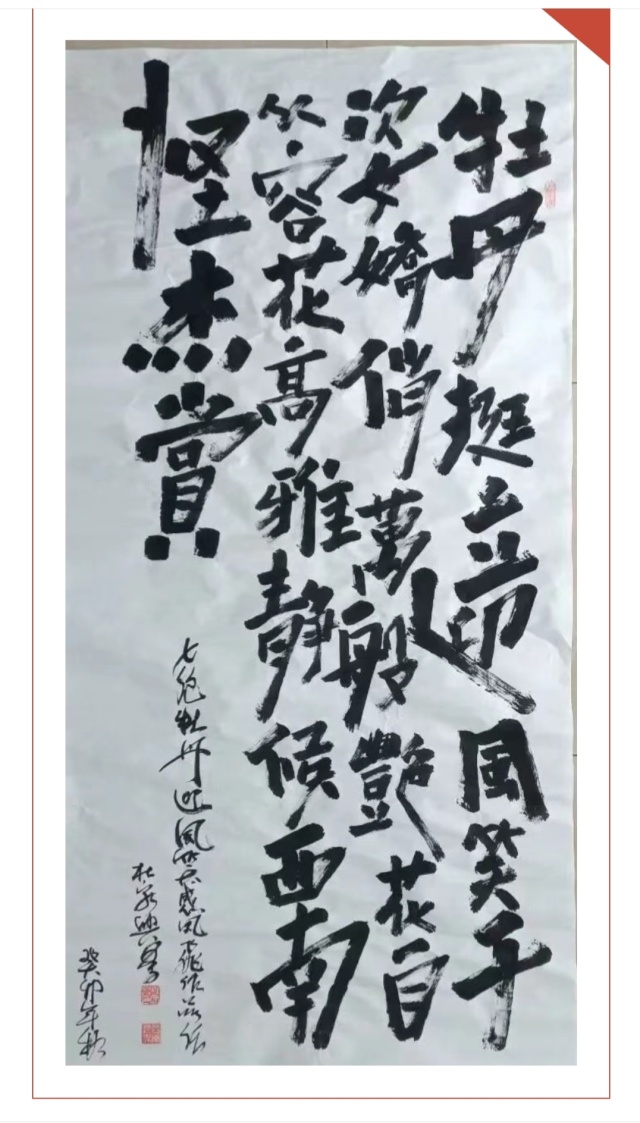 牡丹挺立迎風笑千
姿嬌俏萬般艷花自
从容花高雅靜候西南
怪杰賞
七绝牡丹迎風笑感风飛作品作
癸卯年秋